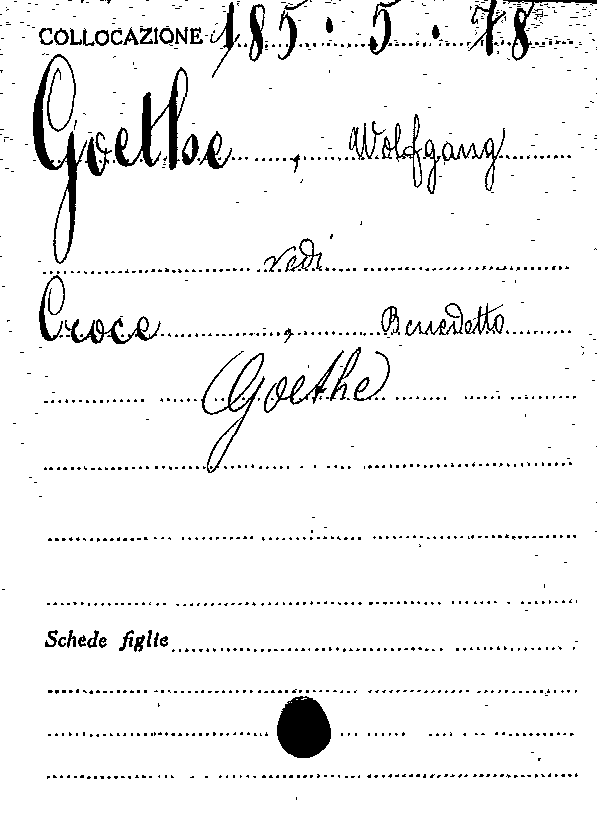 COLLOCAZIONE 185.5.78
Goethe, Wolfgang
vedi
Croce, Benedetto
Goethe
Schede figlie